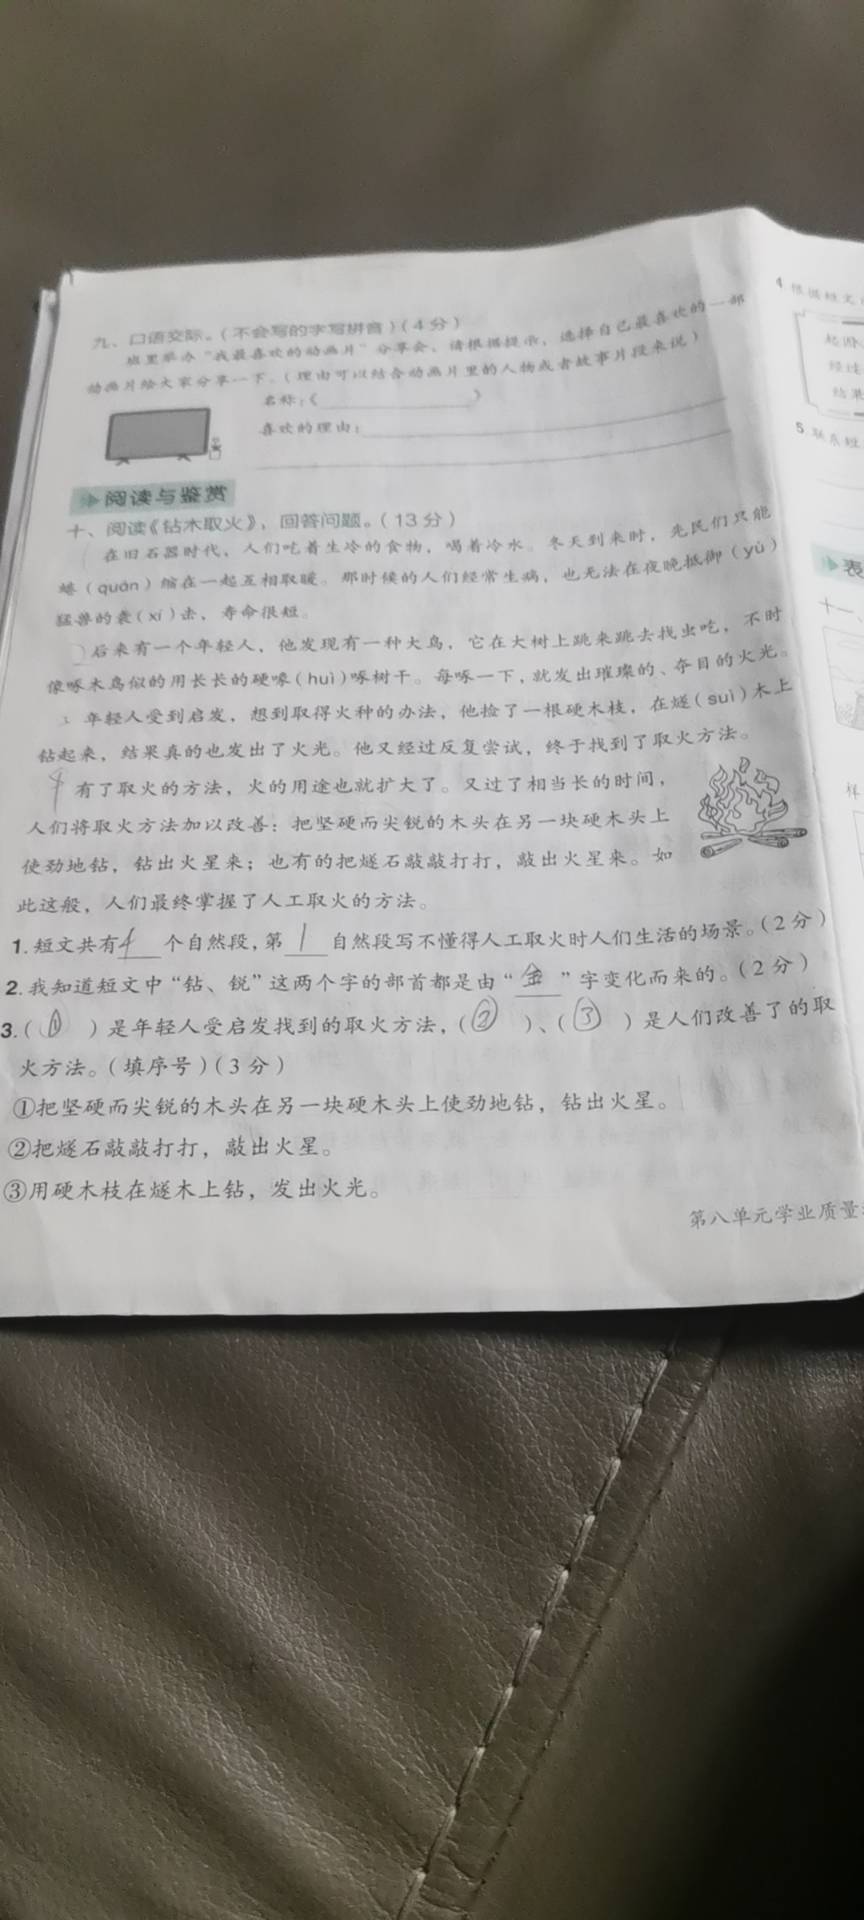 九、口语交际。(不会写的字写拼音)(4分)
班里举办“我最喜欢的动画片”分享会，请根据提示，选择自己最喜欢的一部
动画片给大家分享一下。(理由可以结合动画片里的人物或者故事片段来说)
名称:《 》
喜欢的理由:
阅读与鉴赏
十、阅读《钻木取火》，回答问题。(13分)
在旧石器时代，人们吃着生冷的食物，喝着冷水。冬天到来时，先民们只能
蜷(quán)缩在一起互相取暖。那时候的人们经常生病，也无法在夜晚抵御(yù)
猛兽的袭(xí)击，寿命很短。
后来有一个年轻人，他发现有一种大鸟，它在大树上跳来跳去找虫吃，不时
像啄木鸟似的用长长的硬喙(huì)啄树干。每啄一下，就发出璀璨的、夺目的火光。
年轻人受到启发，想到取得火种的办法，他捡了一根硬木枝，在燧(suì)木上
钻起来，结果真的也发出了火光。他又经过反复尝试，终于找到了取火方法。
4 有了取火的方法，火的用途也就扩大了。又过了相当长的时间，
人们将取火方法加以改善：把坚硬而尖锐的木头在另一块硬木头上
使劲地钻，钻出火星来；也有的把燧石敲敲打打，敲出火星来。如
此这般，人们最终掌握了人工取火的方法。
1.短文共有4个自然段，第1自然段写不懂得人工取火时人们生活的场景。(2分)
2.我知道短文中“钻、锐”这两个字的部首都是由“金”字变化而来的。(2分)
3.(①)是年轻人受启发找到的取火方法，(②)、(③)是人们改善了的取
火方法。(填序号)(3分)
①把坚硬而尖锐的木头在另一块硬木头上使劲地钻，钻出火星。
②把燧石敲敲打打，敲出火星。
③用硬木枝在燧木上钻，发出火光。
第八单元学业质量
4.根据短文
起因
经过
结果
5.联系短
表
十一、
样